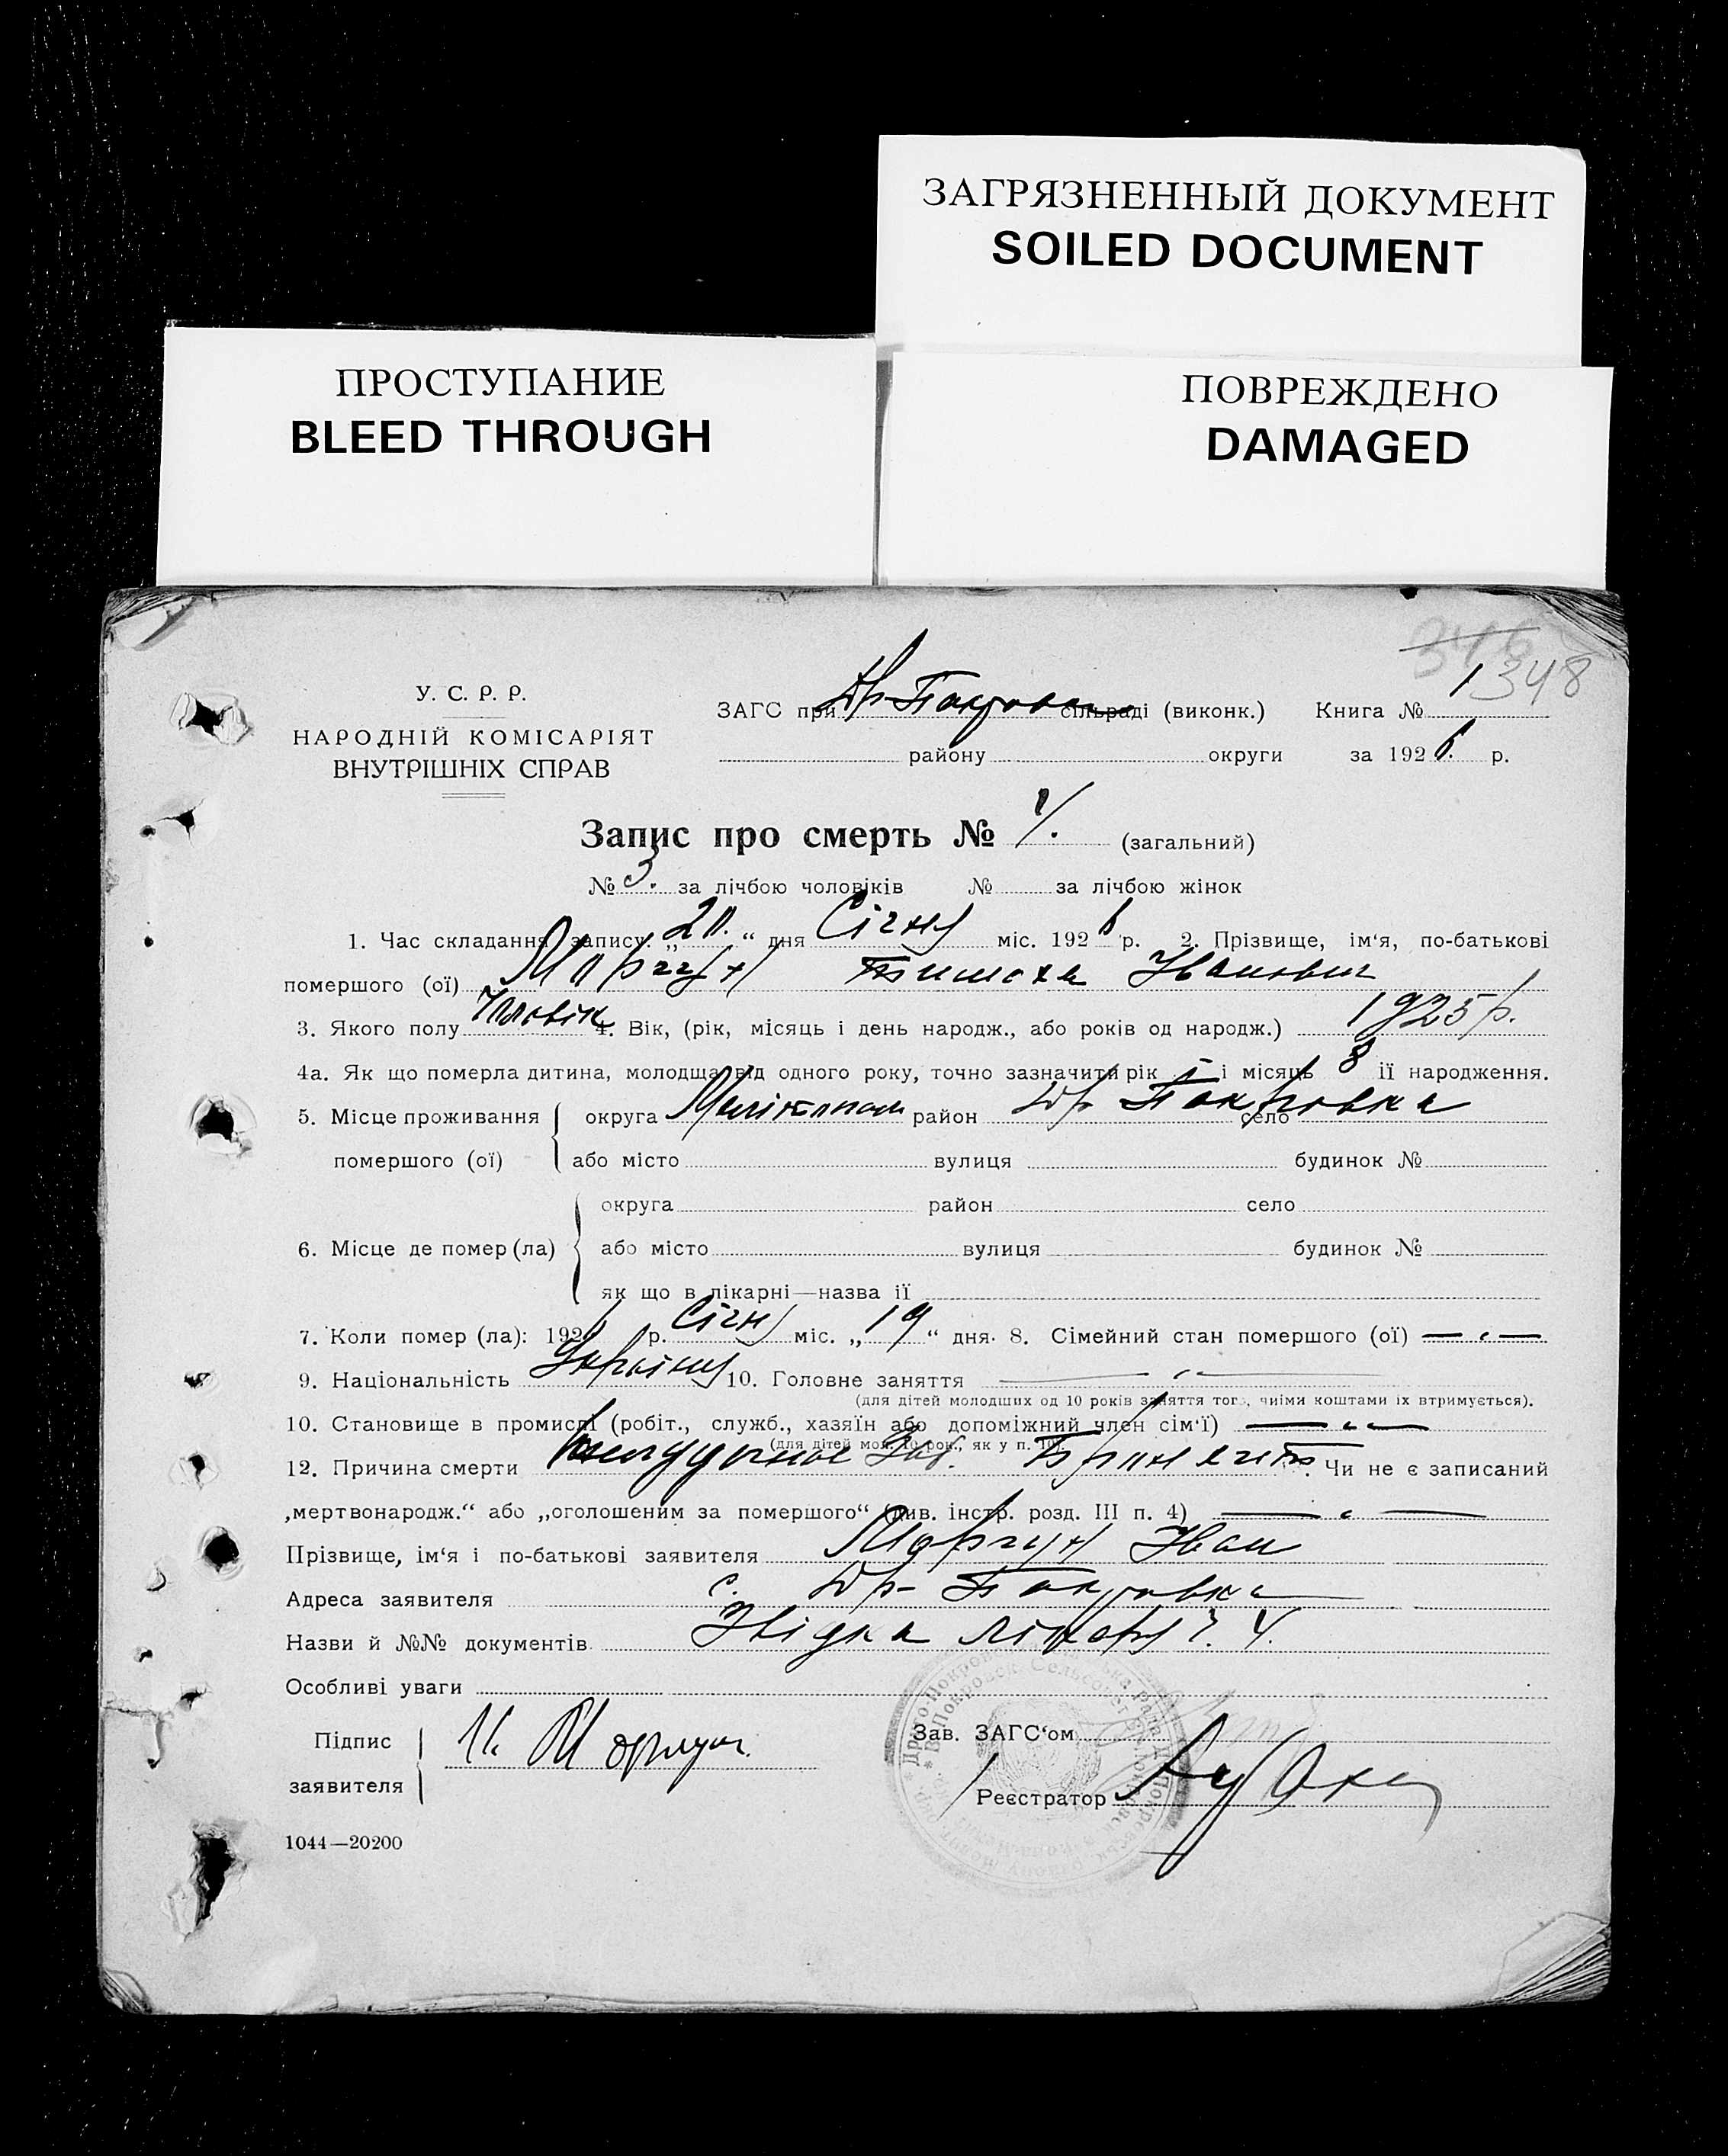 ЗАГРЯЗНЕННЫЙ ДОКУМЕНТ
SOILED DOCUMENT
ПРОСТУПАНИЕ
BLEED THROUGH
ПОВРЕЖДЕНО
DAMAGED
346
1348
У. С. Р. Р.
НАРОДНІЙ КОМІСАРІЯТ
ВНУТРІШНІХ СПРАВ
ЗАГС при Др-Покров сільраді (виконк.) Книга №
району округи за 1926. р.
Запис про смерть № (загальний)
№ 3. за лічбою чоловіків № за лічбою жінок
1. Час складання запису: „20.“ дня Січня міс. 1926 р. 2. Прізвище, ім‘я, по-батькові
помершого (ої) Моргун Тимоха Иванович
3. Якого полу Чловік 4. Вік, (рік, місяць і день народж., або років од народж.) 1925 р.
4а. Як що померла дитина, молодща від одного року, точно зазначити рік - і місяць 8 її народження.
5. Місце проживання округа район Др Покровка село
помершого (ої) або місто вулиця будинок №
округа район село
6. Місце де помер (ла) або місто вулиця будинок №
як що в лікарні—назва її
7. Коли помер (ла): 1926 р. Січня міс. „19“ дня. 8. Сімейний стан помершого (ої) — „ —
9. Національність 10. Головне заняття — „ —
(для дітей молодших од 10 років заняття того, чиїми коштами їх втримується).
10. Становище в промислі (робіт., служб., хазяїн або допоміжний член сім‘ї) — „ —
(для дітей мол. 10 рок., як у п. 10).
12. Причина смерти Чи не є записаний
„мертвонародж.“ або „оголошеним за помершого“ (див. інстр. розд. III п. 4) — „ —
Прізвище, ім‘я і по-батькові заявителя Моргун Иван
Адреса заявителя с. Др-Покровка
Назви й №№ документів
Особливі уваги
Підпис
заявителя
И. Моргун.
Зав. ЗАГС‘ом
Реєстратор
1044—20200